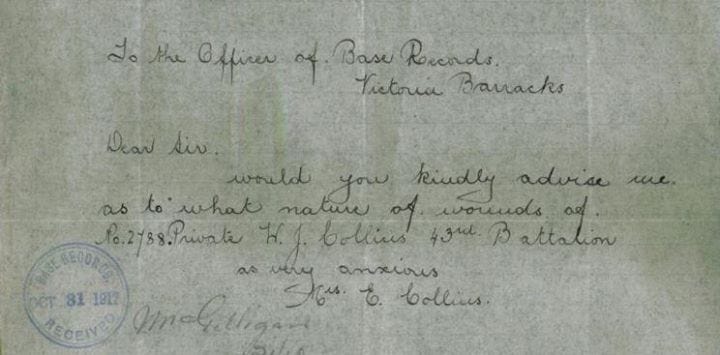 To the Officer of. Base Records.
Victoria Barracks
Dear Sir.
would you kindly advise me.
as to what nature of. wounds of.
No. 2788. Private W. J. Collins 43rd. Battalion
as very anxious
Mrs. E. Collins.
BASE RECORDS.
OCT 31 1917
RECEIVED